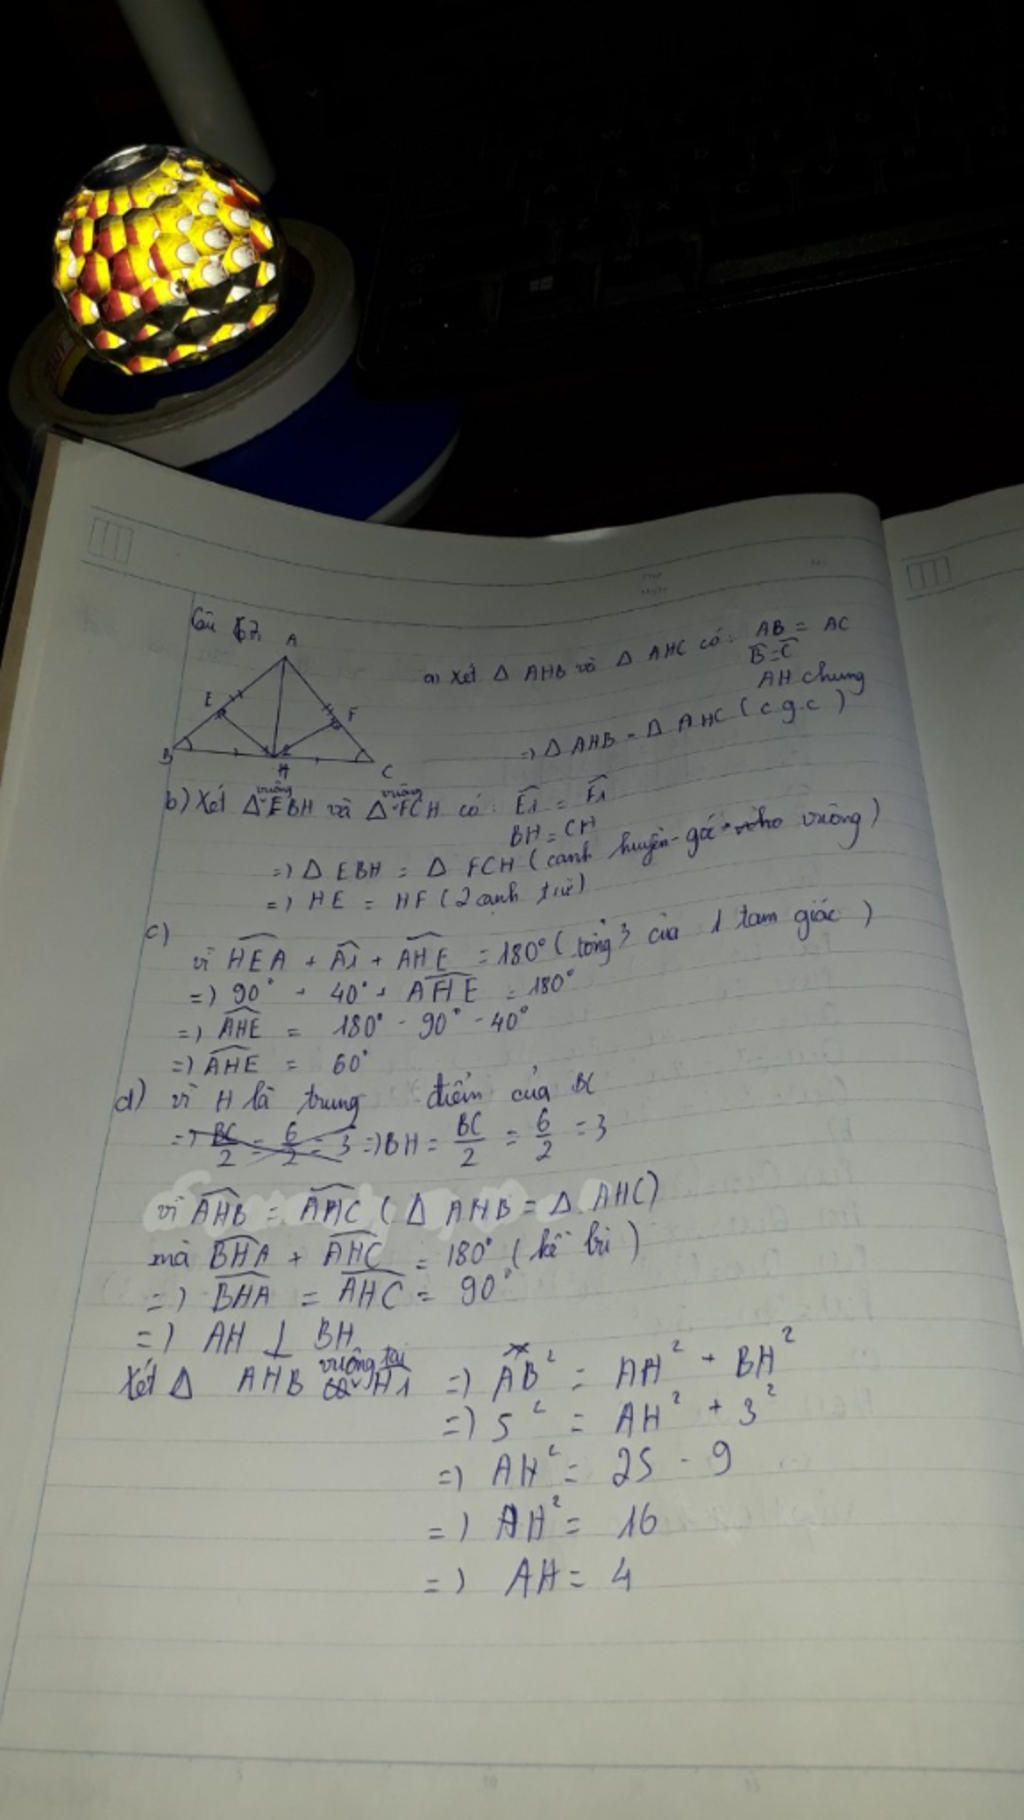 Câu 67.
A
E
F
B
H
C
a) Xét Δ AHB và Δ AHC có: AB = AC
B̂ = Ĉ
AH chung
=) Δ AHB = Δ AHC (c.g.c)
b) Xét Δ vuông EBH và Δ vuông FCH có: Ê1 = F̂1
BH = CH
=) Δ EBH = Δ FCH (cạnh huyền - góc vuông)
=) HE = HF (2 cạnh t/ư)
c)
vì HEA + Â1 + AHE = 180° (tổng 3 của 1 tam giác)
=) 90° + 40° + AHE = 180°
=) AHE = 180° - 90° - 40°
=) AHE = 60°
d) vì H là trung điểm của BC
=) BC/2 = 6/2 = 3 =) BH = BC/2 = 6/2 = 3
vì AHB = AHC (Δ AHB = Δ AHC)
mà BHA + AHC = 180° (kề bù)
=) BHA = AHC = 90°
=) AH ⊥ BH
Xét Δ AHB vuông tại H1 =) AB² = AH² + BH²
=) 5² = AH² + 3²
=) AH² = 25 - 9
=) AH² = 16
=) AH = 4